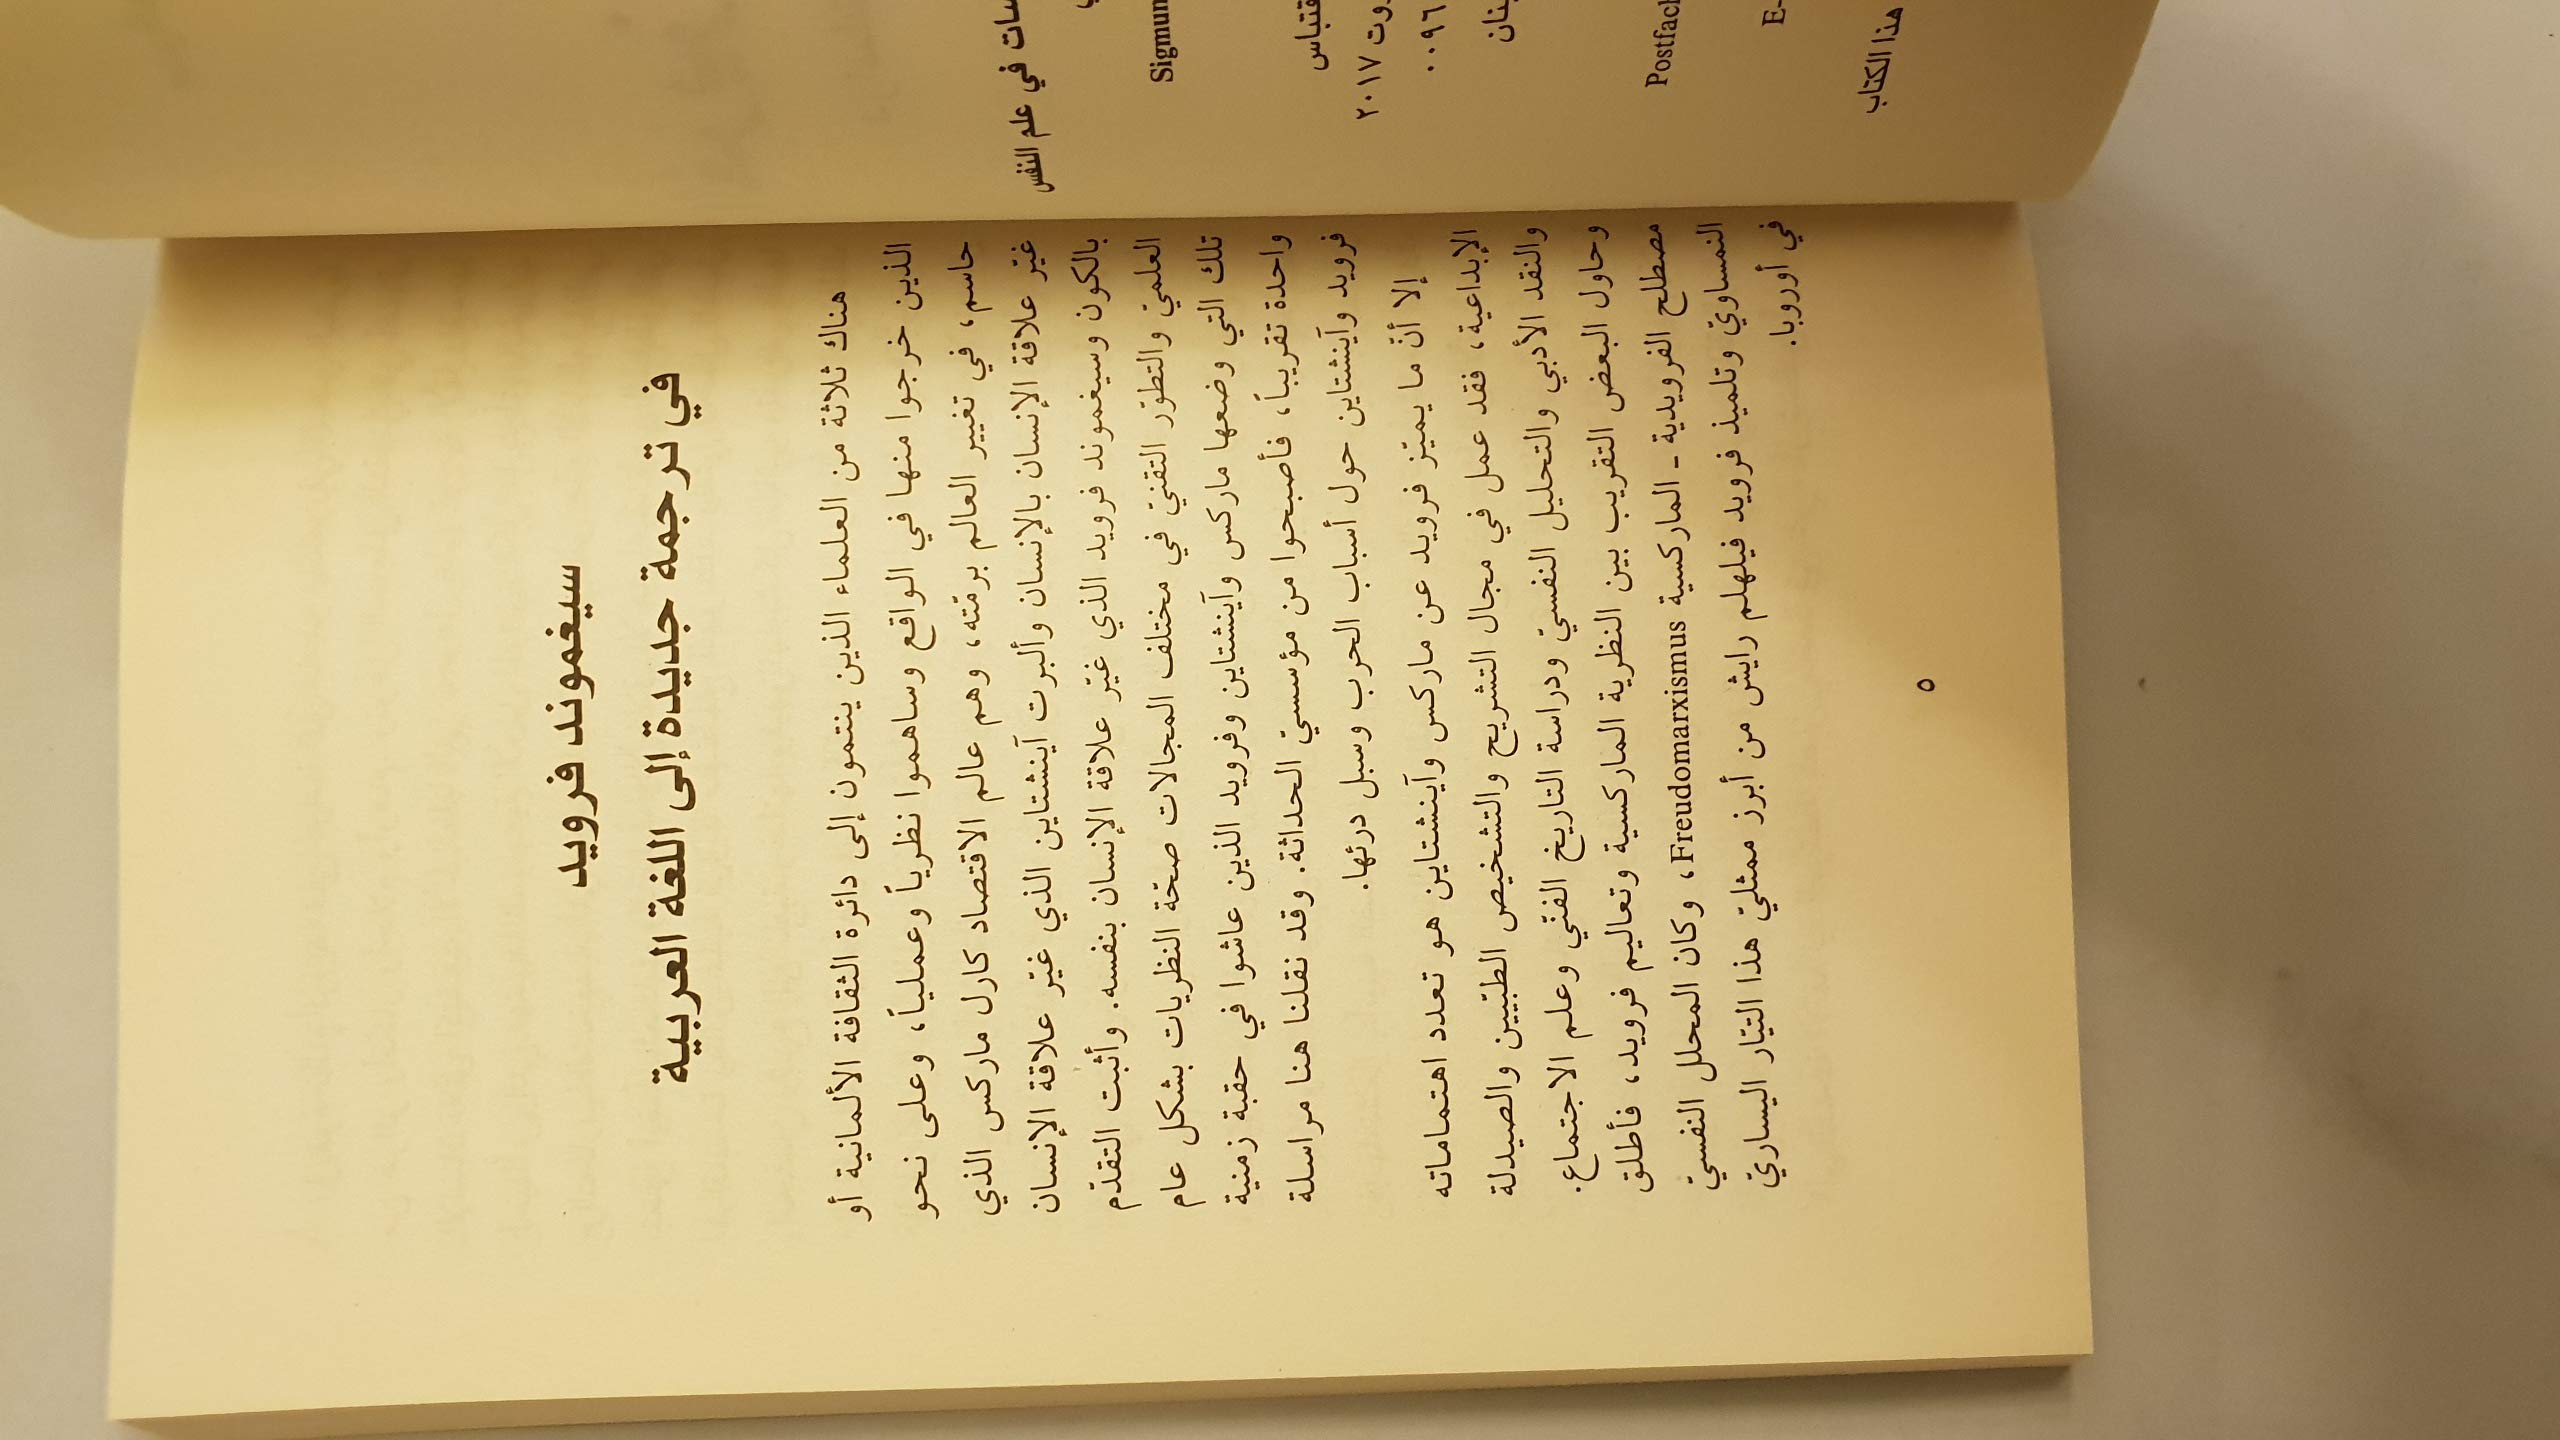 سيغموند فرويد
في ترجمة جديدة إلى اللغة العربية
هناك ثلاثة من العلماء الذين ينتمون إلى دائرة الثقافة الألمانية أو
الذين خرجوا منها في الواقع وساهموا نظرياً وعملياً، وعلى نحو
حاسم، في تغيير العالم برمّته، وهم عالم الاقتصاد كارل ماركس الذي
غيّر علاقة الإنسان بالإنسان وألبرت آينشتاين الذي غيّر علاقة الإنسان
بالكون وسيغموند فرويد الذي غيّر علاقة الإنسان بنفسه. وأثبت التقدّم
العلميّ والتطوّر التقنيّ في مختلف المجالات صحّة النظريات بشكل عام
تلك التي وضعها ماركس وآينشتاين وفرويد الذين عاشوا في حقبة زمنية
واحدة تقريباً، فأصبحوا من مؤسسيّ الحداثة. وقد نقلنا هنا مراسلة
فرويد وآينشتاين حول أسباب الحرب وسبل درئها.
إلا أنّ ما يميّز فرويد عن ماركس وآينشتاين هو تعدد اهتماماته
الإبداعية، فقد عمل في مجال التشريح والتشخيص الطبّيين والصيدلة
والنقد الأدبي والتحليل النفسيّ ودراسة التاريخ الفنّي وعلم الاجتماع.
وحاول البعض التقريب بين النظرية الماركسية وتعاليم فرويد، فأطلق
مصطلح الفرويدية - الماركسية Freudomarxismus، وكان المحلل النفسيّ
النمساويّ وتلميذ فرويد فيلهلم رايش من أبرز ممثليّ هذا التيّار اليساريّ
في أوروبا.
٥
سات في علم النفس
Sigmun
قتباس
وت ٢٠١٧
٠٠٩٦
بنان
Postfach
E-
هذا الكتاب